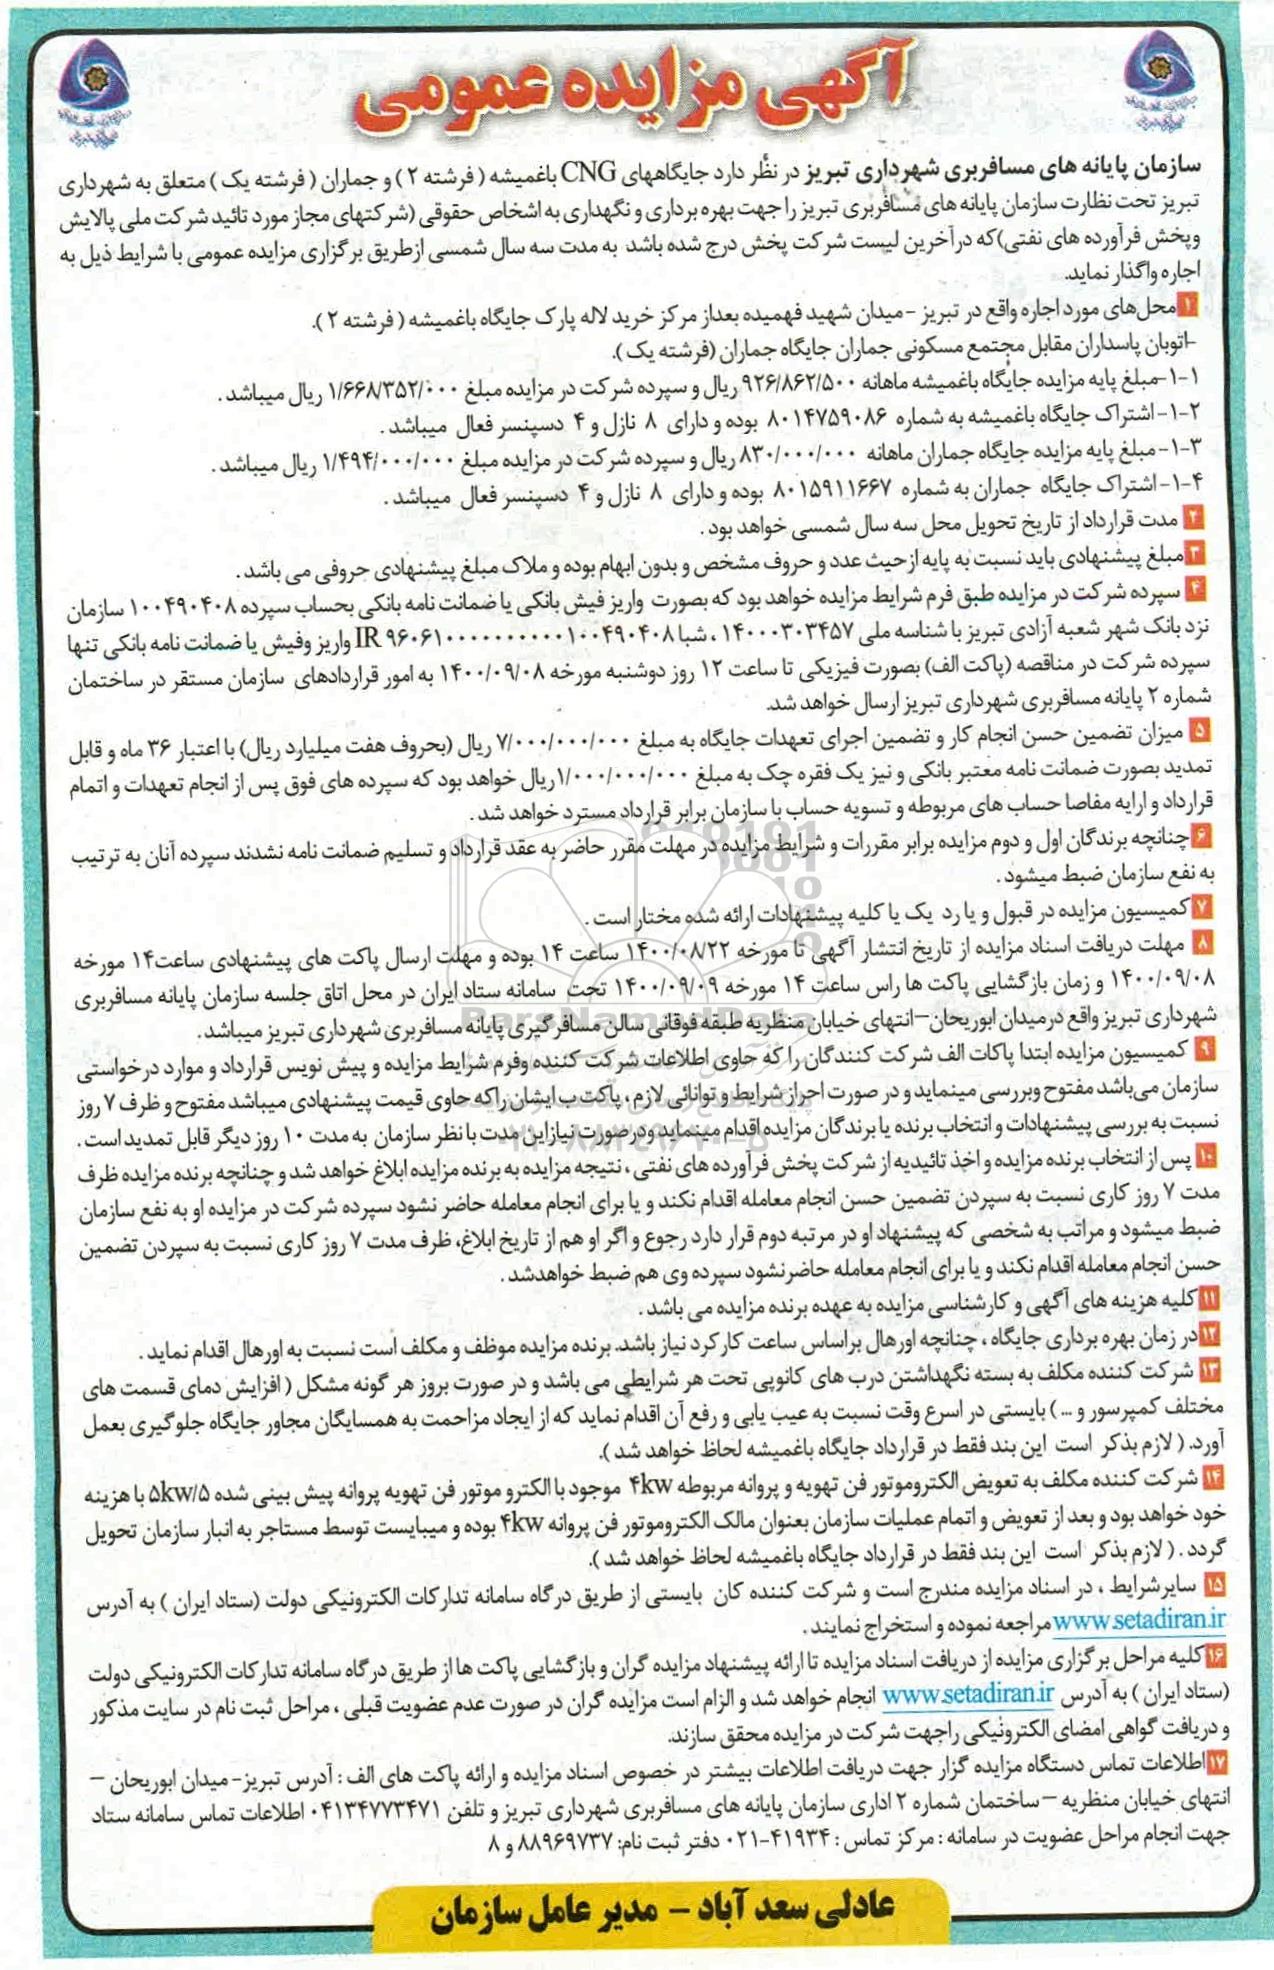 آگهی مزایده عمومی
سازمان پایانه های مسافربری شهرداری تبریز در نظر دارد جایگاههای CNG باغمیشه ( فرشته ۲ ) و جماران ( فرشته یک ) متعلق به شهرداری
تبریز تحت نظارت سازمان پایانه های مسافربری تبریز را جهت بهره برداری و نگهداری به اشخاص حقوقی (شرکتهای مجاز مورد تائید شرکت ملی پالایش
وپخش فرآورده های نفتی)که درآخرین لیست شرکت پخش درج شده باشد به مدت سه سال شمسی ازطریق برگزاری مزایده عمومی با شرایط ذیل به
اجاره واگذار نماید.
۱ محل‌های مورد اجاره واقع در تبریز -میدان شهید فهمیده بعداز مرکز خرید لاله پارک جایگاه باغمیشه ( فرشته ۲ ).
-اتوبان پاسداران مقابل مجتمع مسکونی جماران جایگاه جماران (فرشته یک ).
۱-۱-مبلغ پایه مزایده جایگاه باغمیشه ماهانه ۹۲۶/۸۶۲/۵۰۰ ریال و سپرده شرکت در مزایده مبلغ ۱/۶۶۸/۳۵۲/۰۰۰ ریال میباشد .
۱-۲-اشتراک جایگاه باغمیشه به شماره ۸۰۱۴۷۵۹۰۸۶ بوده و دارای ۸ نازل و ۴ دسپنسر فعال میباشد .
۱-۳-مبلغ پایه مزایده جایگاه جماران ماهانه ۸۳۰/۰۰۰/۰۰۰ ریال و سپرده شرکت در مزایده مبلغ ۱/۴۹۴/۰۰۰/۰۰۰ ریال میباشد .
۱-۴-اشتراک جایگاه جماران به شماره ۸۰۱۵۹۱۱۶۶۷ بوده و دارای ۸ نازل و ۴ دسپنسر فعال میباشد .
۲ مدت قرارداد از تاریخ تحویل محل سه سال شمسی خواهد بود .
۳ مبلغ پیشنهادی باید نسبت به پایه از حیث عدد و حروف مشخص و بدون ابهام بوده و ملاک مبلغ پیشنهادی حروفی می باشد .
۴ سپرده شرکت در مزایده طبق فرم شرایط مزایده خواهد بود که بصورت واریز فیش بانکی یا ضمانت نامه بانکی بحساب سپرده ۱۰۰۴۹۰۴۰۸ سازمان
نزد بانک شهر شعبه آزادی تبریز با شناسه ملی ۱۴۰۰۰۳۰۳۴۵۷ ، شبا IR ۹۶۰۶۱۰۰۰۰۰۰۰۰۰۰۰۱۰۰۴۹۰۴۰۸ واریز وفیش یا ضمانت نامه بانکی تنها
سپرده شرکت در مناقصه (پاکت الف) بصورت فیزیکی تا ساعت ۱۲ روز دوشنبه مورخه ۱۴۰۰/۰۹/۰۸ به امور قراردادهای سازمان مستقر در ساختمان
شماره ۲ پایانه مسافربری شهرداری تبریز ارسال خواهد شد.
۵ میزان تضمین حسن انجام کار و تضمین اجرای تعهدات جایگاه به مبلغ ۷/۰۰۰/۰۰۰/۰۰۰ ریال (بحروف هفت میلیارد ریال) با اعتبار ۳۶ ماه و قابل
تمدید بصورت ضمانت نامه معتبر بانکی و نیز یک فقره چک به مبلغ ۱/۰۰۰/۰۰۰/۰۰۰ریال خواهد بود که سپرده های فوق پس از انجام تعهدات و اتمام
قرارداد و ارایه مفاصا حساب های مربوطه و تسویه حساب با سازمان برابر قرارداد مسترد خواهد شد .
۶ چنانچه برندگان اول و دوم مزایده برابر مقررات و شرایط مزایده در مهلت مقرر حاضر به عقد قرارداد و تسلیم ضمانت نامه نشدند سپرده آنان به ترتیب
به نفع سازمان ضبط میشود .
۷ کمیسیون مزایده در قبول و یا رد یک یا کلیه پیشنهادات ارائه شده مختار است .
۸ مهلت دریافت اسناد مزایده از تاریخ انتشار آگهی تا مورخه ۱۴۰۰/۰۸/۲۲ ساعت ۱۴ بوده و مهلت ارسال پاکت های پیشنهادی ساعت۱۴ مورخه
۱۴۰۰/۰۹/۰۸ و زمان بازگشایی پاکت ها راس ساعت ۱۴ مورخه ۱۴۰۰/۰۹/۰۹ تحت سامانه ستاد ایران در محل اتاق جلسه سازمان پایانه مسافربری
شهرداری تبریز واقع درمیدان ابوریحان–انتهای خیابان منظریه طبقه فوقانی سالن مسافرگیری پایانه مسافربری شهرداری تبریز میباشد.
ParsNamadData
۹ کمیسیون مزایده ابتدا پاکات الف شرکت کنندگان را که حاوی اطلاعات شرکت کننده وفرم شرایط مزایده و پیش نویس قرارداد و موارد درخواستی
سازمان می‌باشد مفتوح وبررسی مینماید و در صورت احراز شرایط و توانائی لازم ، پاکت ب ایشان راکه حاوی قیمت پیشنهادی میباشد مفتوح و ظرف ۷ روز
نسبت به بررسی پیشنهادات و انتخاب برنده یا برندگان مزایده اقدام مینماید ودرصورت نیازاین مدت با نظر سازمان به مدت ۱۰ روز دیگر قابل تمدید است .
۱۰ پس از انتخاب برنده مزایده و اخذ تائیدیه از شرکت پخش فرآورده های نفتی ، نتیجه مزایده به برنده مزایده ابلاغ خواهد شد و چنانچه برنده مزایده ظرف
مدت ۷ روز کاری نسبت به سپردن تضمین حسن انجام معامله اقدام نکند و یا برای انجام معامله حاضر نشود سپرده شرکت در مزایده او به نفع سازمان
ضبط میشود و مراتب به شخصی که پیشنهاد او در مرتبه دوم قرار دارد رجوع و اگر او هم از تاریخ ابلاغ، ظرف مدت ۷ روز کاری نسبت به سپردن تضمین
حسن انجام معامله اقدام نکند و یا برای انجام معامله حاضرنشود سپرده وی هم ضبط خواهدشد .
۱۱ کلیه هزینه های آگهی و کارشناسی مزایده به عهده برنده مزایده می باشد .
۱۲ در زمان بهره برداری جایگاه ، چنانچه اورهال براساس ساعت کارکرد نیاز باشد. برنده مزایده موظف و مکلف است نسبت به اورهال اقدام نماید .
۱۳ شرکت کننده مکلف به بسته نگهداشتن درب های کانوپی تحت هر شرایطی می باشد و در صورت بروز هر گونه مشکل ( افزایش دمای قسمت های
مختلف کمپرسور و ... ) بایستی در اسرع وقت نسبت به عیب یابی و رفع آن اقدام نماید که از ایجاد مزاحمت به همسایگان مجاور جایگاه جلوگیری بعمل
آورد. ( لازم بذکر است این بند فقط در قرارداد جایگاه باغمیشه لحاظ خواهد شد ).
۱۴ شرکت کننده مکلف به تعویض الکتروموتور فن تهویه و پروانه مربوطه ۴kw موجود با الکترو موتور فن تهویه پروانه پیش بینی شده ۵/۵kw با هزینه
خود خواهد بود و بعد از تعویض و اتمام عملیات سازمان بعنوان مالک الکتروموتور فن پروانه ۴kw بوده و میبایست توسط مستاجر به انبار سازمان تحویل
گردد . ( لازم بذکر است این بند فقط در قرارداد جایگاه باغمیشه لحاظ خواهد شد ).
۱۵ سایرشرایط ، در اسناد مزایده مندرج است و شرکت کننده کان بایستی از طریق درگاه سامانه تدارکات الکترونیکی دولت (ستاد ایران ) به آدرس
www.setadiran.ir مراجعه نموده و استخراج نمایند .
۱۶ کلیه مراحل برگزاری مزایده از دریافت اسناد مزایده تا ارائه پیشنهاد مزایده گران و بازگشایی پاکت ها از طریق درگاه سامانه تدارکات الکترونیکی دولت
(ستاد ایران ) به آدرس www.setadiran.ir انجام خواهد شد و الزام است مزایده گران در صورت عدم عضویت قبلی ، مراحل ثبت نام در سایت مذکور
و دریافت گواهی امضای الکترونیکی راجهت شرکت در مزایده محقق سازند.
۱۷ اطلاعات تماس دستگاه مزایده گزار جهت دریافت اطلاعات بیشتر در خصوص اسناد مزایده و ارائه پاکت های الف : آدرس تبریز- میدان ابوریحان –
انتهای خیابان منظریه –ساختمان شماره ۲ اداری سازمان پایانه های مسافربری شهرداری تبریز و تلفن ۰۴۱۳۴۷۷۳۴۷۱ اطلاعات تماس سامانه ستاد
جهت انجام مراحل عضویت در سامانه : مرکز تماس : ۴۱۹۳۴-۰۲۱ دفتر ثبت نام: ۸۸۹۶۹۷۳۷ و ۸
عادلی سعد آباد – مدیر عامل سازمان